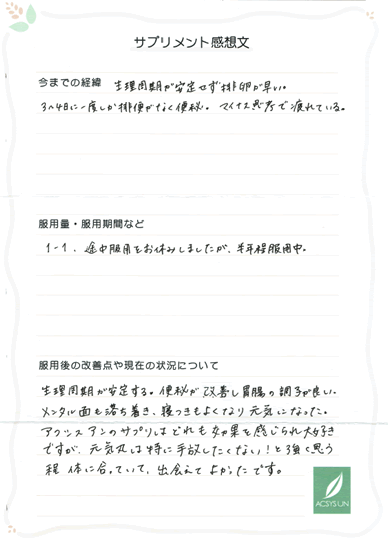 サプリメント感想文
今までの経緯 生理周期が安定せず排卵が早い。
3~4日に一度しか排便がなく便秘。マイナス思考で疲れている。
服用量・服用期間など
1-1. 途中服用をお休みしましたが、半年程服用中。
服用後の改善点や現在の状況について
生理周期が安定する。便秘が改善し胃腸の調子が良い。
メンタル面も落ち着き、寝つきもよくなり元気になった。
アクシスアンのサプリはどれも効果を感じられ大好き
ですが、元気丸は特に手放したくない!と強く思う
程 体に合っていて、出会えてよかったです。
ACSYS UN